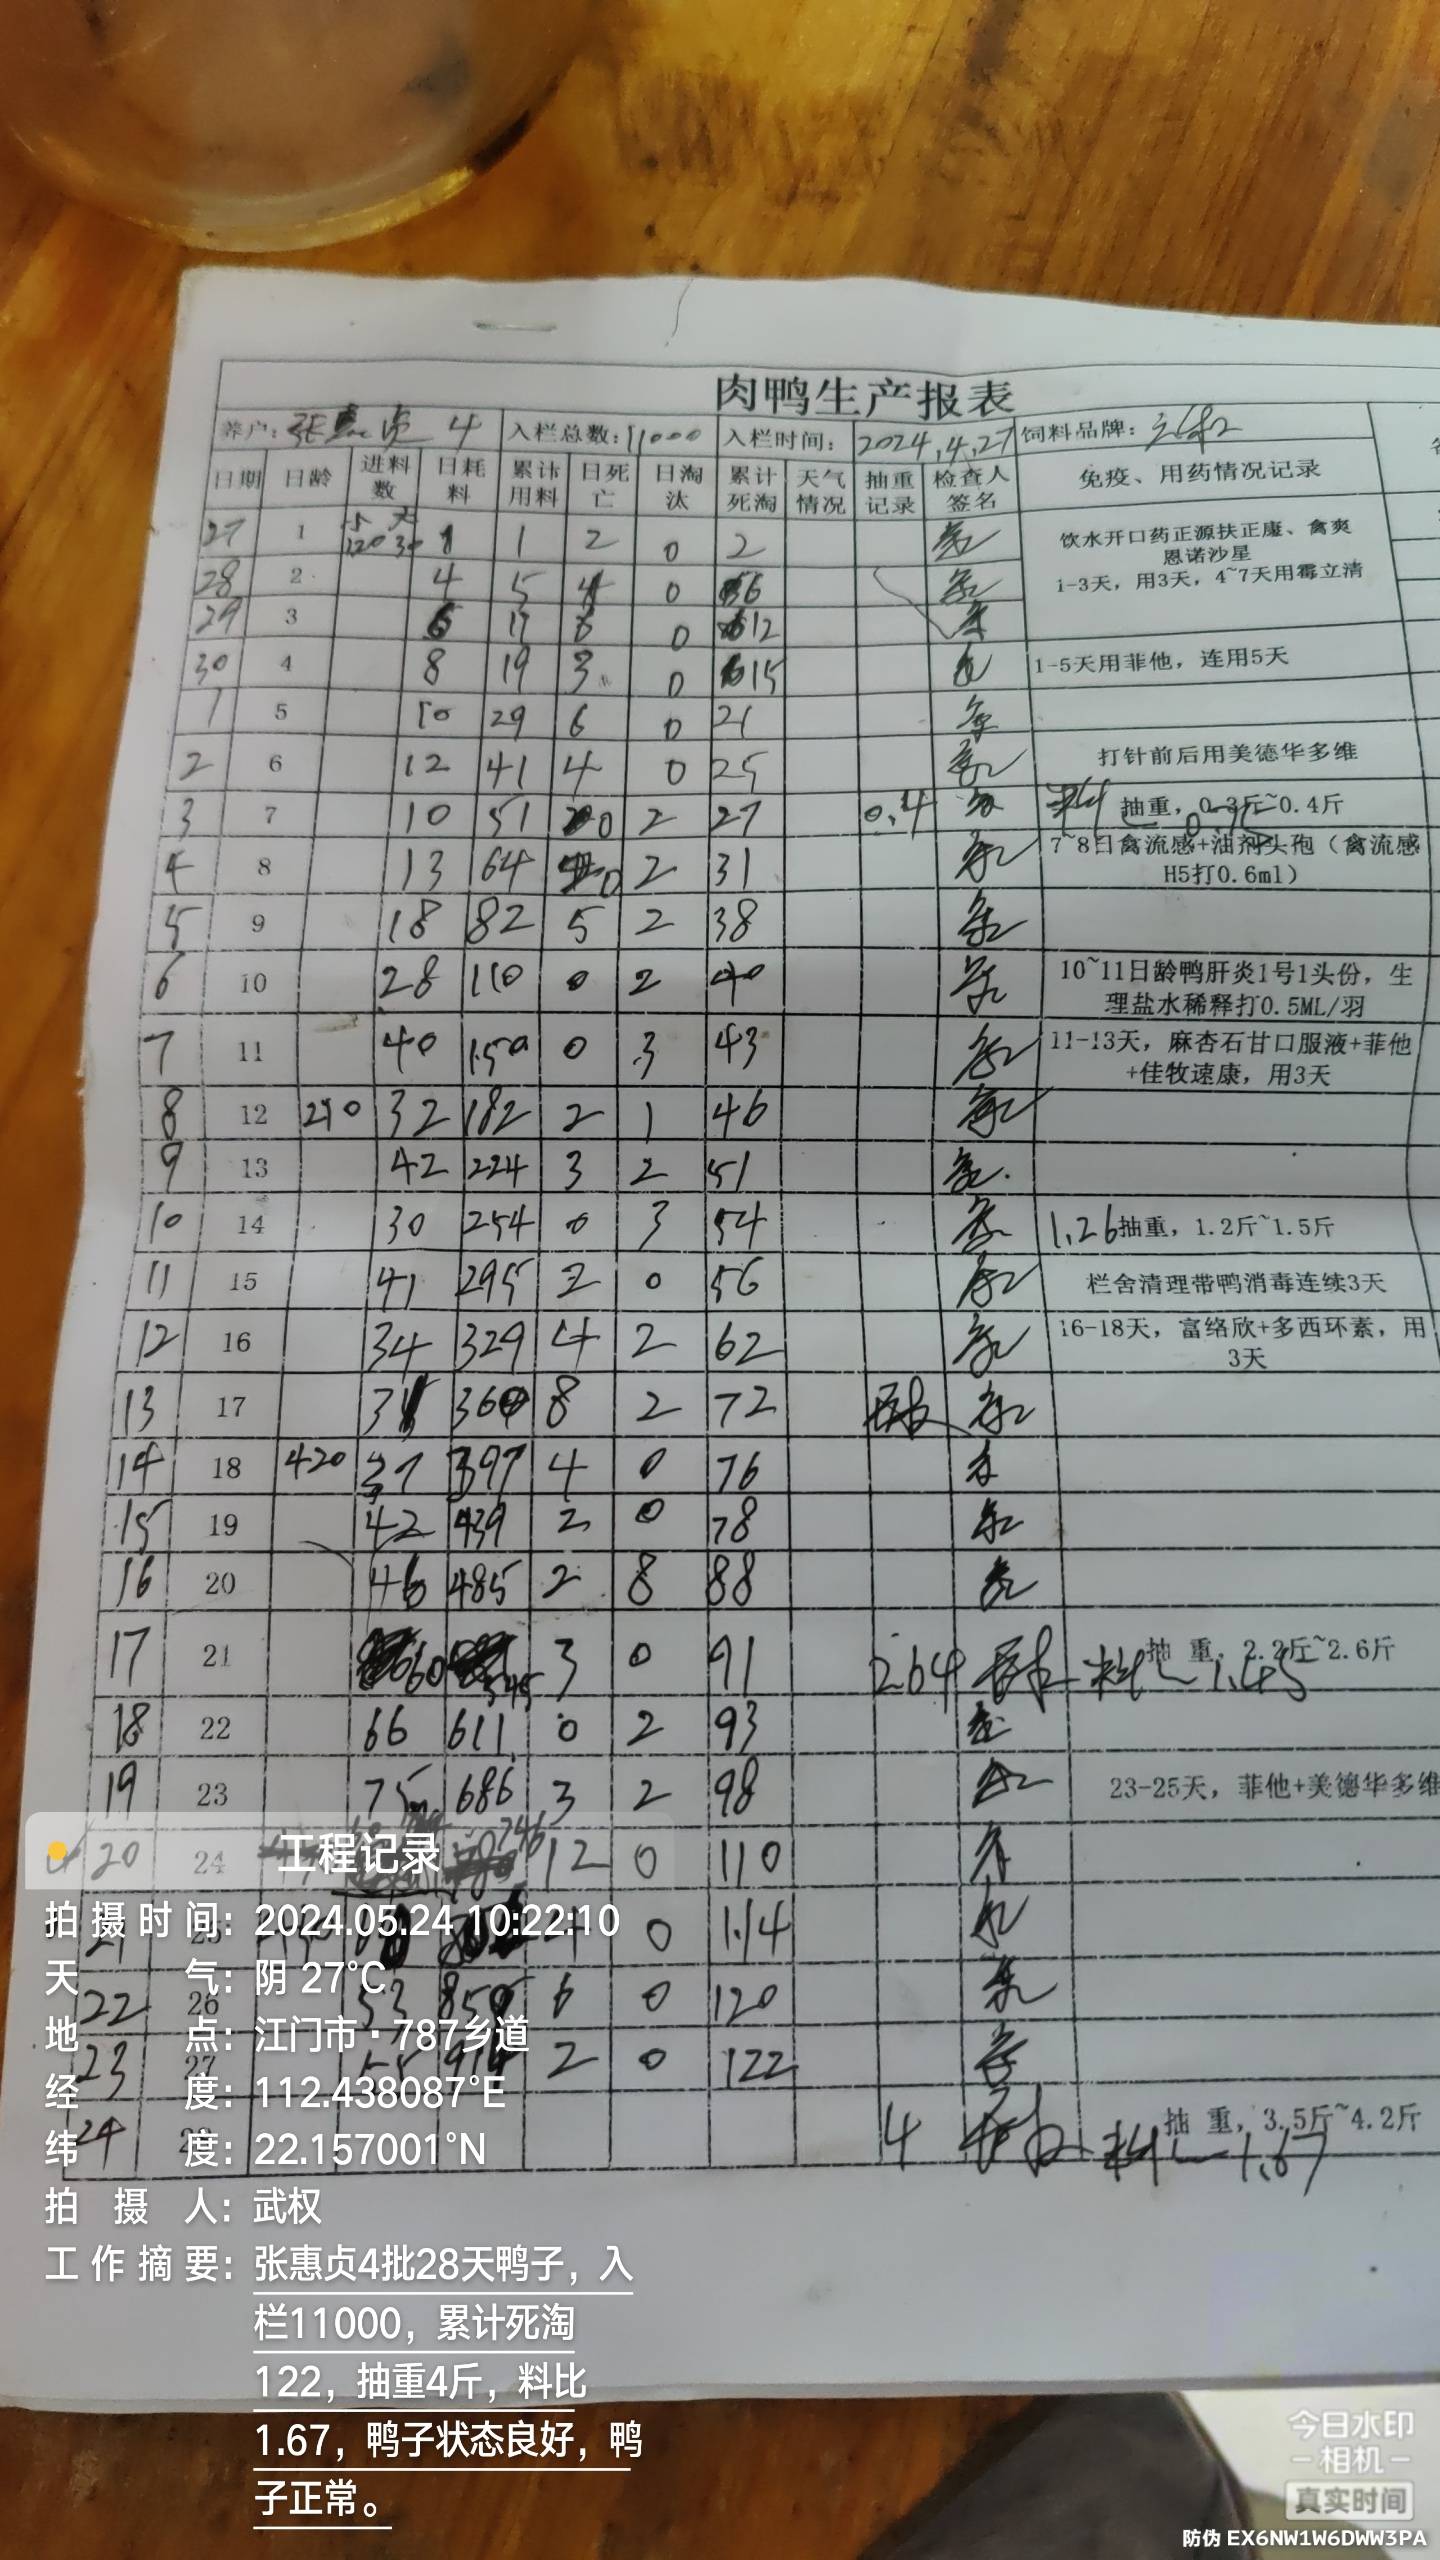 肉鸭生产报表
养户: 张惠贞 4 入栏总数: 11000 入栏时间: 2024.4.27 饲料品牌:
日期 日龄 进料数 日耗料 累计用料 日死亡 日淘汰 累计死淘 天气情况 抽重记录 检查人签名 免疫、用药情况记录
27 1 120 30 1 1 2 0 2 饮水开口药正源扶正康、禽爽
恩诺沙星
28 2 4 5 4 0 6 1-3天，用3天，4~7天用霉立清
29 3 6 0 12
30 4 8 19 3 0 15 1-5天用菲他，连用5天
1 5 10 29 6 0 21
2 6 12 41 4 0 25 打针前后用美德华多维
3 7 10 51 0 2 27 0.4 料 抽重，0.3斤~0.4斤
4 8 13 64 0 2 31 7~8日禽流感+油剂头孢（禽流感
H5打0.6ml）
5 9 18 82 5 2 38
6 10 28 110 0 2 40 10~11日龄鸭肝炎1号1头份，生
理盐水稀释打0.5ML/羽
7 11 40 150 0 3 43 11-13天，麻杏石甘口服液+菲他
+佳牧速康，用3天
8 12 210 32 182 2 1 46
9 13 42 224 3 2 51
10 14 30 254 0 3 54 1.26 抽重，1.2斤~1.5斤
11 15 41 295 2 0 56 栏舍清理带鸭消毒连续3天
12 16 34 329 4 2 62 16-18天，富络欣+多西环素，用
3天
13 17 31 360 8 2 72
14 18 420 37 397 4 0 76
15 19 42 439 2 0 78
16 20 46 485 2 8 88
17 21 60 545 3 0 91 2.64 料比1.45 抽 重，2.2斤~2.6斤
18 22 66 611 0 2 93
19 23 75 686 3 2 98 23-25天，菲他+美德华多维
20 24 746 12 0 110
21 25 4 0 114
22 26 53 6 0 120
23 27 55 914 2 0 122
24 28 4 料比1.67 抽 重，3.5斤~4.2斤
工程记录
拍摄时间: 2024.05.24 10:22:10
天气: 阴 27°C
地点: 江门市·787乡道
经度: 112.438087°E
纬度: 22.157001°N
拍摄人: 武权
工作摘要: 张惠贞4批28天鸭子，入
栏11000，累计死淘
122，抽重4斤，料比
1.67，鸭子状态良好，鸭
子正常。
今日水印
-相机-
真实时间
防伪 EX6NW1W6DWW3PA